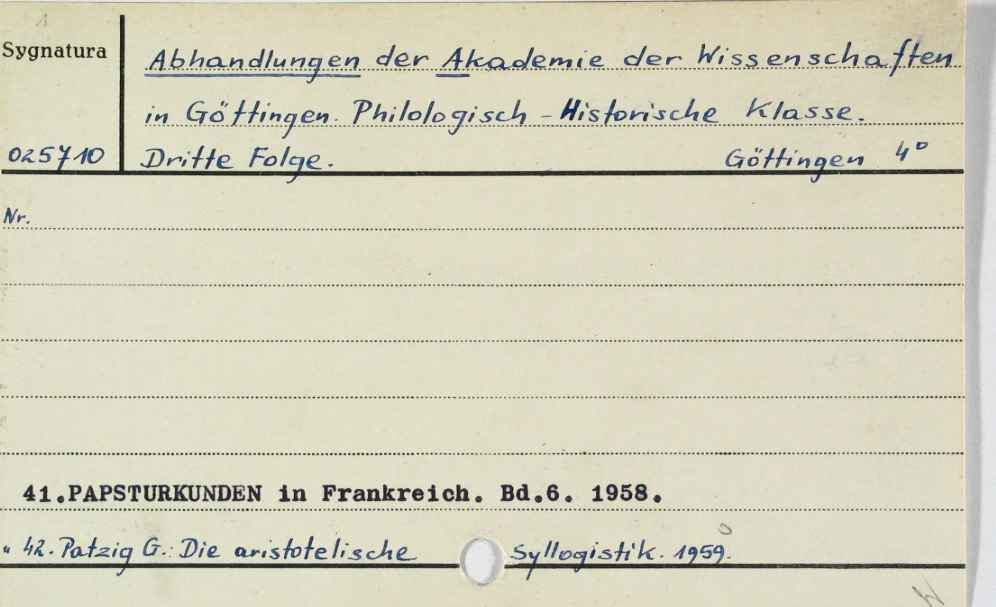 Sygnatura
Abhandlungen der Akademie der Wissenschaften
in Göttingen. Philologisch - Historische Klasse.
025710 Dritte Folge. Göttingen 4°
Nr.
41.PAPSTURKUNDEN in Frankreich. Bd.6. 1958.
" 42. Patzig G.: Die aristotelische Syllogistik. 1959.